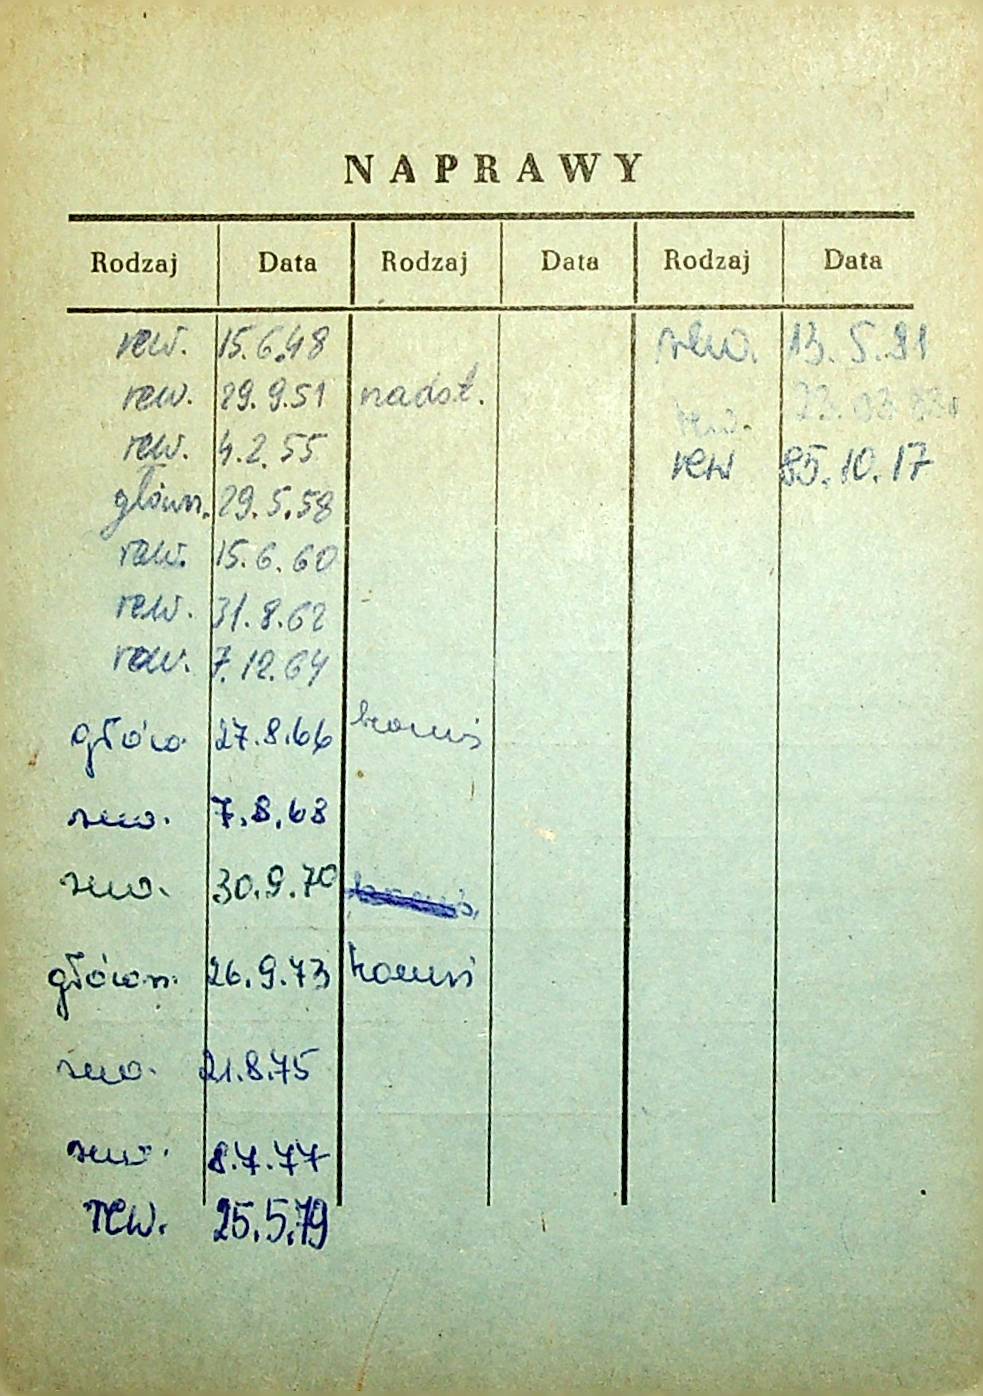 NAPRAWY
Rodzaj Data Rodzaj Data Rodzaj Data
rew. 15.6.48 rew. 13.5.81
rew. 29.9.51 nadst. rew. 23.03.83
rew. 4.2.55 rew 85.10.17
główn. 29.5.58
rew. 15.6.60
rew. 31.8.62
rew. 7.12.64
głów 27.8.66
rew. 7.8.68
rew. 30.9.70
główn. 26.9.73
rew. 21.8.75
rew. 8.7.77
rew. 25.5.79